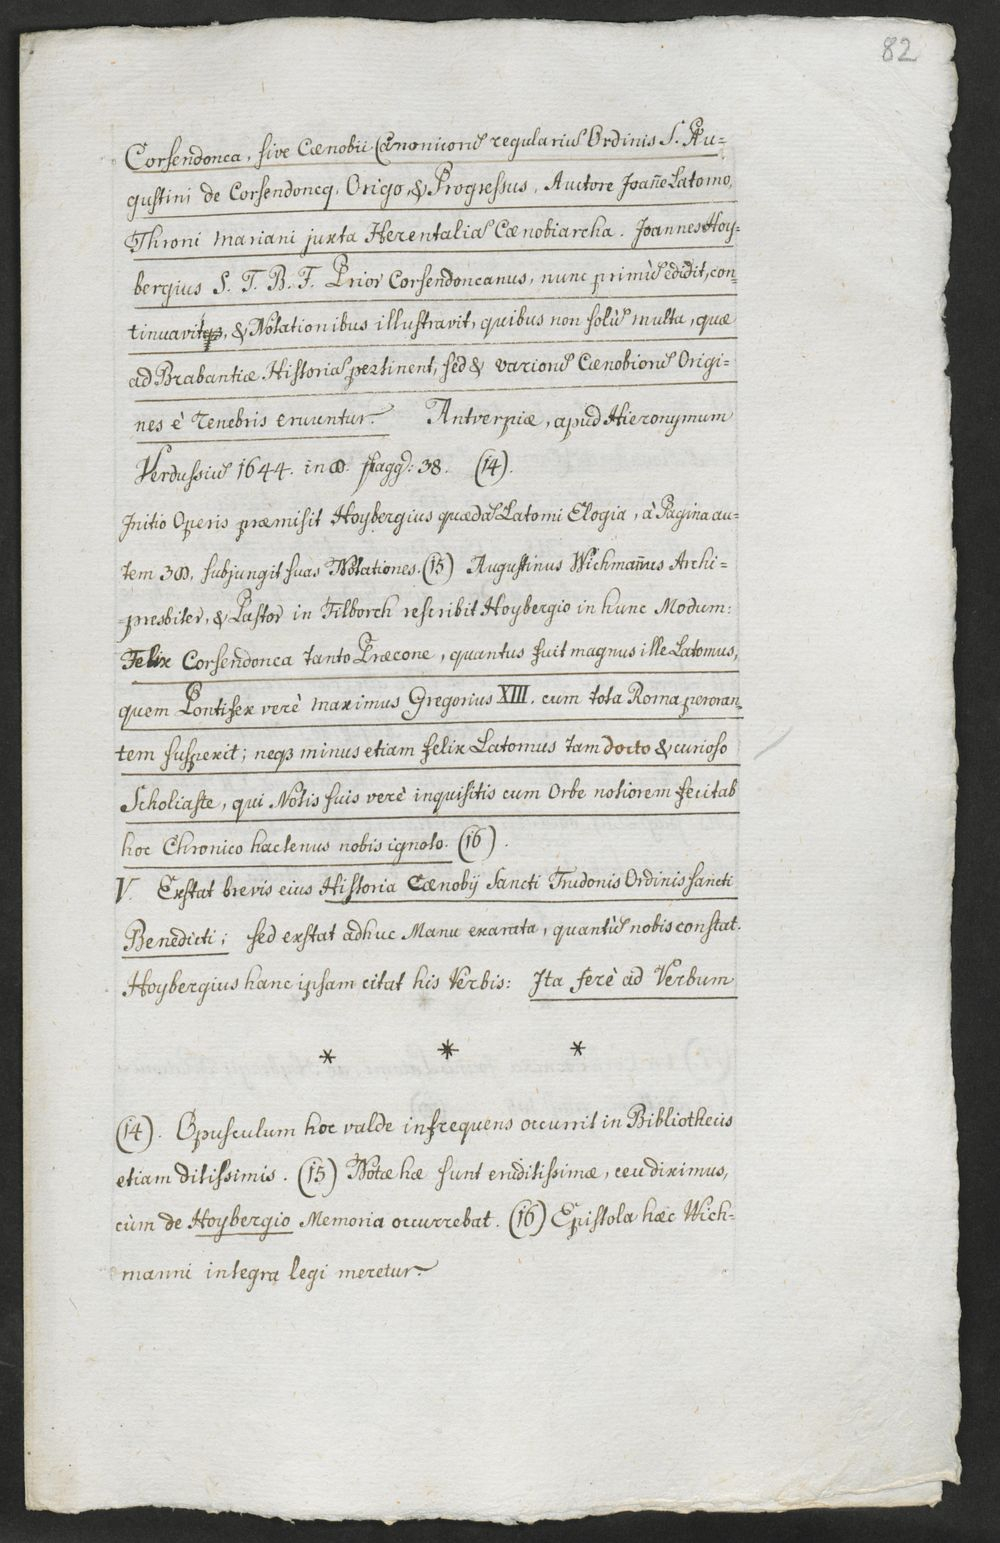 82
Corsendonca, sive Cænobii Canonicorũ regulariũ Ordinis S. Au-
gustini de Corsendoncq, Origo, & Progressus, Auctore Joañe Latomo,
Throni Mariani juxta Herentaliã Cænobiarcha. Joannes Hoy-
bergius S. T. B. F. Prior Corsendoncanus, nunc primũ edidit, con-
tinuavit, & Notationibus illustravit, quibus non solũ multa, quæ
ad Brabantiæ Historiã pertinent, sed & variorũ Cænobiorũ Origi-
nes è Tenebris eruuntur. Antverpiæ, apud Hieronymum
Verdussiũ 1644. in 8. pagg: 38. (14).
Initio Operis præmisit Hoybergius quædã Latomi Elogia, à Pagina au-
tem 38, subjungit suas Notationes. (15) Augustinus Wichmañus Archi=
=presbiter, & Pastor in Tilborch rescribit Hoybergio in hunc Modum:
Felix Corsendonca tanto Præcone, quantus fuit magnus ille Latomus,
quem Pontifex verè maximus Gregorius XIII. cum tota Roma peroran-
tem suspexit; neqз minus etiam felix Latomus tam docto & curioso
Scholiaste, qui Notis suis verè inquisitis eum Orbe notiorem fecit ab
hoc Chronico hactenus nobis ignoto. (16).
V. Exstat brevis eius Historia Cænobij Sancti Trudonis Ordinis sancti
Benedicti; sed exstat adhuc Manu exarata, quantũ nobis constat.
Hoybergius hanc ipsam citat his Verbis: Ita ferè ad Verbum
* * *
(14). Opusculum hoc valde infrequens occurrit in Bibliothecis
etiam ditissimis. (15) Notæ hæ sunt eruditissimæ, ceu diximus,
cùm de Hoybergio Memoria occurrebat. (16) Epistola hæc Wich-
manni integra legi meretur.